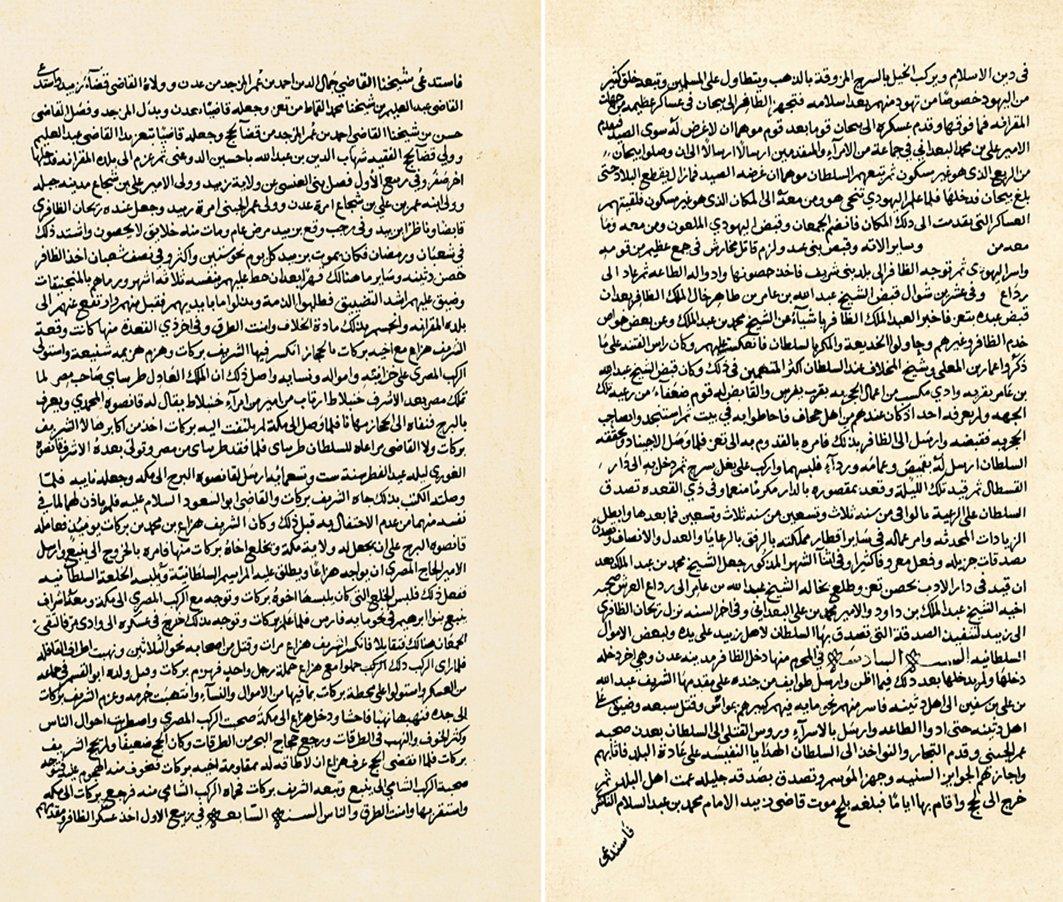 في دين الاسلام ويركب الخيل بالسرج المزوقة بالذهب ويتطاول على المسلمين وتبعه خلق كثير
من اليهود خصوصا من تهود منهم بعد اسلامه فتجهز الظافر الى بيحان في عساكر عظيمه من جهات
المقرانه فما فوقها وقدم عسكره الى بيحان قوما بعد قوم موهما ان لا غرض له سوى الصيد فقدم
الامير على بن محمد البعداني في جماعة من الامرآء والمقدمين ارسالا ارسالا الى ان وصلوا بيحان
من الربع الذي هو غير مسكون ثم تبعهم السلطان موهما ان غرضه الصيد فما زال يقطع البلاد حتى
بلغ بيحان فدخلها فلما علم اليهودي تنحى هو ومن معه الى المكان الذي هو غير مسكون فلقيتهم
العساكر التي تقدمت الى ذلك المكان فانضم الجمعان وقبض اليهودي الملعون ومن معه وما
معه من وساير الاته وقبض بنى عبد ولزم قاتل مخارش في جمع عظيم من قومه
واسر اليهودى ثم توجه الظافر الى بلد بنى شريف فاخذ حصونها وادوا له الطاعه ثم عاد الى
رداع وفي عشرين شوال قبض الشيخ عبد الله بن عامر بن طاهر خال الملك الظافر بعد ان
قبض عبده بتعز فاخبر العبد الملك الظافر باشياء عن الشيخ محمد بن عبد الملك وعن بعض خواص
خدم الظافر وغيرهم وحاولوا الخديعة والمكر بالسلطان فانعكست عليهم وكان راس الفتنه على ما
ذكروا عمار بن المعلى وشيخ المخلاف عند السلطان اكثر المتهمين في ذلك وكان قبض الشيخ عبد الله
بن عامر بقريه وادي من اعمال الحجريه بقرب يفرس والقابض له قوم ضعفاء من رعية تلك
الجهه ولم يعرفه احد اذ كان عندهم من اهل جحاف فاحاطوا به في بيت ثم استنجدوا بصاحب
الحجريه فقبضه وارسل الى الظافر بذلك فامره بالقدوم به الى تعز فلما وصل الاجناد وتحققه
السلطان ارسل له بقميص وعمامه وردآء فلبسهما واركب على بغل بسرج ثم دخل به الى دار
القسطال ثم قيد تلك الليلة وقعد بمقصوره بالدار مكرما منعما وفي ذي القعده تصدق
السلطان على الرعية بالبواقي من سنه ثلاث وتسعين من سنه ثلاث وتسعين فما بعدها وابطل
الزيادات المحدثه وامر عماله في ساير اقطار مملكته بالرفق بالرعايا والعدل والانصاف وتصدق
بصدقات جزيله وفعل معروفا كثيرا وفي اثنآ الشهر المذكور جعل الشيخ محمد بن عبد الملك بعد
ان قيد في دار الادب بحصن تعز وطلع بخاله الشيخ عبد الله بن عامر الى رداع العرش صحبه
اخيه الشيخ عبد الملك بن داود والامير محمد بن علي البعداني وفي اخر السنه نزل ريحان الظافري
الى زبيد لتنفيذ الصدقة التي تصدق بها السلطان لاهل زبيد على يده ولبعض الاموال
السلطانيه السنة السادسة في المحرم منها دخل الظافر مدينه عدن وهي اخر دخله
دخلها ولم يدخلها بعد ذلك فيما اظن وارسل طوايف من جنده على مقدمها الشريف عبد الله
بن على بن سفين الى اهل دثينه فاسر منهم نحو مايه فيهم كبيرهم بمواش وقتل سبعه وضيق على
اهل دثينه حتى ادوا الطاعه وارسل بالاسرآء وروس القتلى الى السلطان بعدن صحبه
عمر الجبنى وقدم التجار والنواخذ الى السلطان الهدايا النفيسه على عادة البلد فاثابهم
واجازهم الجوايز السنيه وجهز الموسم وتصدق بصدقه جليله عمت اهل البلد ثم
خرج الى لحج واقام بها اياما فبلغه بلحج موت قاضي زبيد الامام محمد بن عبد السلام الناشري
فاستدعى
فاستدعى شيخنا القاضي جمال الدين احمد بن عمر المزجد من عدن وولاه القاضي قضآء زبيد واستدعى
القاضي عبد العليم بن شيخنا محمد القماط من تعز وجعله قاضيا بعدن وبدل المزجد وفصل القاضى
حسن بن شيخنا القاضي احمد بن عمر المزجد من قضآ لحج وجعله قاضيا بتعز بدل القاضى عبد العليم
وولى قضآ لحج الفقيه شهاب الدين بن عبد الله باحسين الدوعنى ثم عزم الى بلده المقرانه فدخلها
اخر صفر وفي ربيع الأول فصل بنى العنسى عن ولاية زبيد وولى الامير على بن شجاع مدينه جبله
وولى ابنه عمر بن علي بن شجاع امرة عدن وولى عمر الجبنى امرة زبيد وجعل عنده ريحان الظافري
قابضا وناظرا بزبيد وفي رجب وقع بزبيد مرض عام ومات منه خلايق لا يحصون واشتد ذلك
في شعبان ورمضان فكان يموت بزبيد كل يوم نحو ستين واكثر وفي نصف شعبان اخذ الظافر
حصن دثينه وساير ما هنالك قهرا بعد ان حط عليهم بنفسه ثلاثة اشهر ورماهم بالمنجنيقات
وضيق عليهم اشد التضييق فطلبوا الذمة وبذلوا ما بايديهم فقبل منهم وارتفع عنهم الى
بلده المقرانه وانحسم بذلك مادة الخلاف وامنت الطرق وفي اخر ذي القعدة منها كانت وقعة
الشريف هزاع مع اخيه بركات بالحجاز انكسر فيها الشريف بركات وهزم هزيمه شنيعة واستولى
الركب المصرى على خزائنه وامواله ونسايه واصل ذلك ان الملك العادل طومباى صاحب مصر لما
تملك مصر بعد الاشرف جنبلاط ارتاب من امير من امرآء جنبلاط يقال له قانصوه المحمدي ويعرف
بالبرج فنفاه الى الحجاز مهانا فلما وصل الى مكة لم يلتفت اليه بركات احد من اكابرها لا الشريف
بركات ولا القاضى مراعاه للسلطان طومباى فلما فقد طومباى من مصر وتولى بعده الاشرف قانصوه
الغوري ليله عيد الفطر سنة ست وتسعمائه ارسل لقانصوه البرج الى مكه وجعله نايبه فلما
وصلته الكتب بذلك جاه الشريف بركات والقاضى ابو السعود السلام عليه فلم ياذن لهما لما في
نفسه منهما من عدم الاحتفال به قبل ذلك وكان الشريف هزاع بن محمد بن بركات يوميذ فعامله
قانصوه البرج على ان يجعل له ولاية مكة ويخلع اخاه بركات منها فامره بالخروج الى ينبع وارسل
الامير الحاج المصري ان يواجه هزاعا ويطلق عليه المراسيم السلطانيه ويلبسه الخلعة السلطانيه
ففعل ذلك فلبس الخلع التي كان يلبسها اخوه بركات وتوجه مع الركب المصري الى مكة ومعه اشراف
ينبع بنوا ابرهيم في نحو مايه فارس فلما علم بركات وتوجه بذلك خرج في عسكره الى وادى مر فالتقى
الجمعان هنالك فتقابلا فانكسر الشريف هزاع مرات وقتل من اصحابه نحو الثلاثين ونهبت اطراف القافله
فلما راى الركب ذلك الركب حملوا مع هزاع حملة رجل واحد فهزم بركات وقتل ولده ابو القسم في جماعه
من العسكر واستولوا على محطة بركات بما فيها من الاموال والنسآء وانتهبت حرمه وعزم الشريف بركات
الى جده فنهبها نهبا فاحشا ودخل هزاع الى مكة صحبت الركب المصري واضطربت احوال الناس
وكثر الخوف والنهب في الطرقات ورجع حجاج البحر من الطرقات وكان الحج ضعيفا ولم يحج الشريف
بركات فلما انقضى الحج عرف هزاع ان لا طاقه له بمقاومة اخيه بركات فتخوف منه الهجوم عليه فتوجه
صحبة الركب الشامي الى ينبع وتبعه الشريف بركات فحماه الركب الشامي منه فرجع بركات الى مكه
واستقر بها وامنت الطرق والناس السنة السابعه في ربيع الاول اخذ عسكر الظافر ومقدمهم